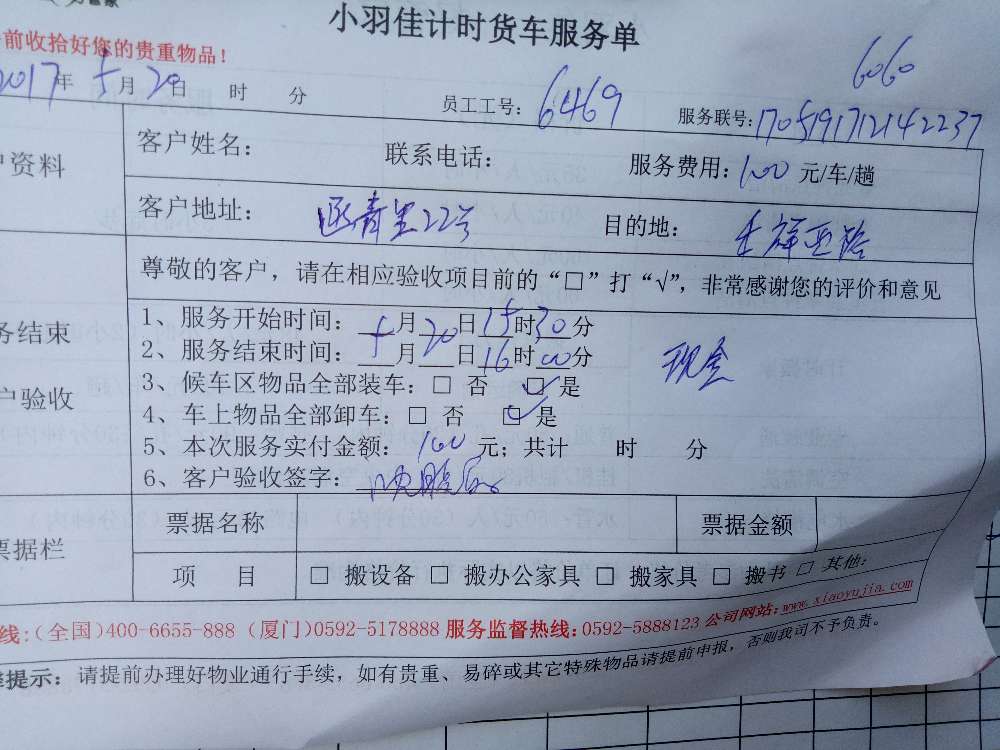 小羽佳计时货车服务单
前收拾好您的贵重物品！
6060
2017年5月20日 时 分 员工工号：6469 服务联号：170519171214 2237
户资料
客户姓名： 联系电话： 服务费用：100元/车/趟
客户地址： 22号 目的地：
尊敬的客户，请在相应验收项目前的“□”打“√”，非常感谢您的评价和意见
务结束
户验收
1、服务开始时间：5月20日15时30分
2、服务结束时间：5月20日16时00分
现金
3、候车区物品全部装车：□ 否 ☑是
4、车上物品全部卸车：□ 否 ☑是
5、本次服务实付金额：100元；共计 时 分
6、客户验收签字：
票据栏
票据名称 票据金额
项 目 □ 搬设备 □ 搬办公家具 □ 搬家具 □ 搬书 □ 其他：
线：（全国）400-6655-888（厦门）0592-5178888 服务监督热线：0592-5888123 公司网站：www.xiaoyujia.com
提示：请提前办理好物业通行手续，如有贵重、易碎或其它特殊物品请提前申报，否则我司不予负责。